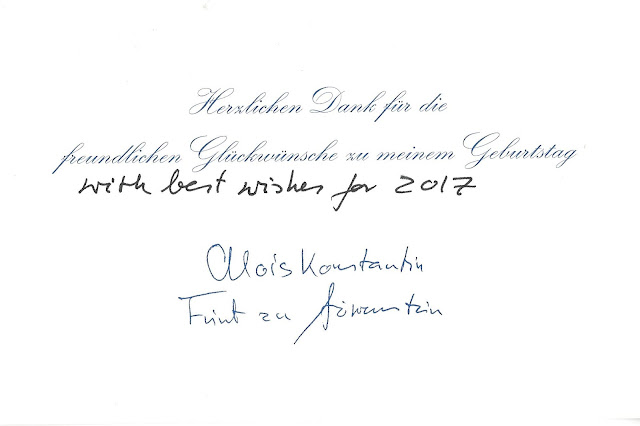 Herzlichen Dank für die
freundlichen Glückwünsche zu meinem Geburtstag
with best wishes for 2017
Alois Konstantin
Fürst zu Löwenstein